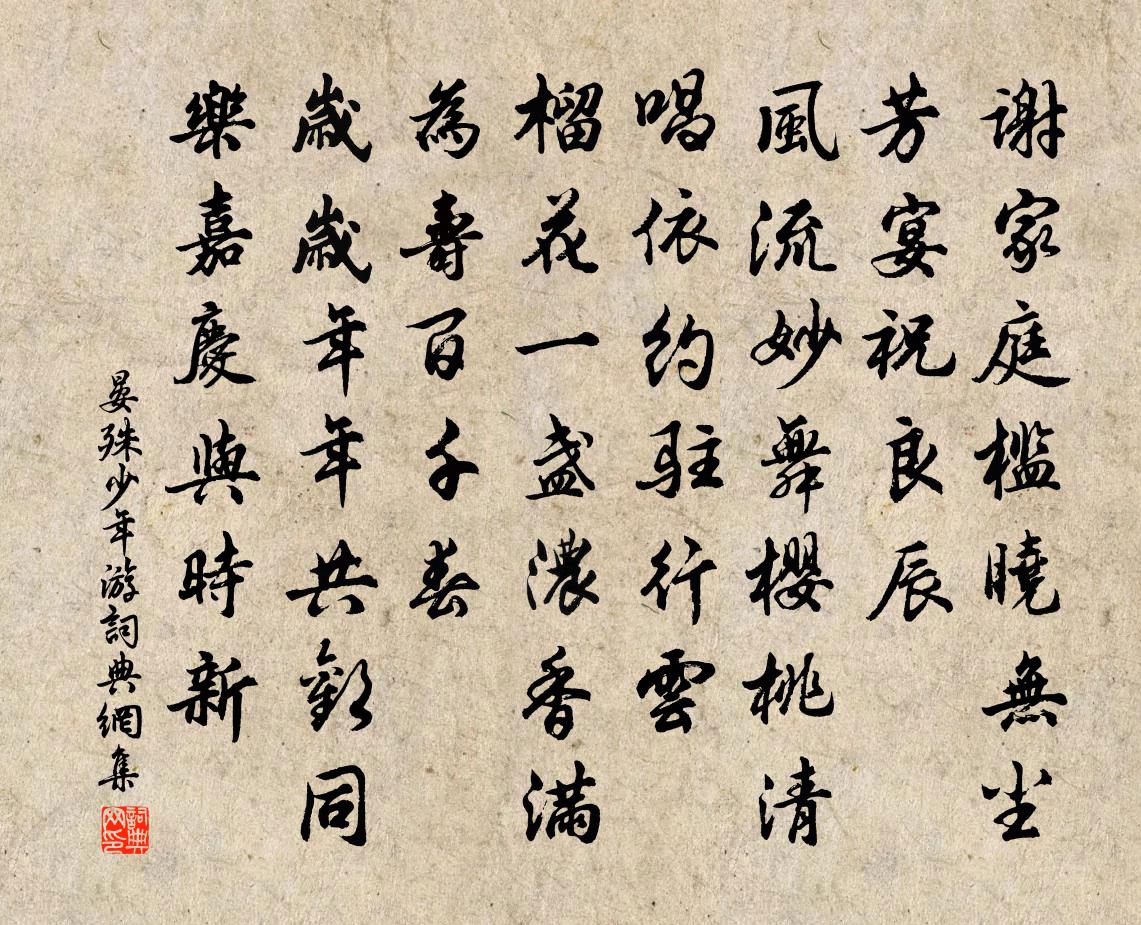 謝家庭檻曉無尘
芳宴祝良辰
風流妙舞櫻桃清
唱依約駐行雲
榴花一盞濃香滿
為壽百千春
歲歲年年共歡同
樂嘉慶與時新
晏殊少年游詞典網集
詞典网印